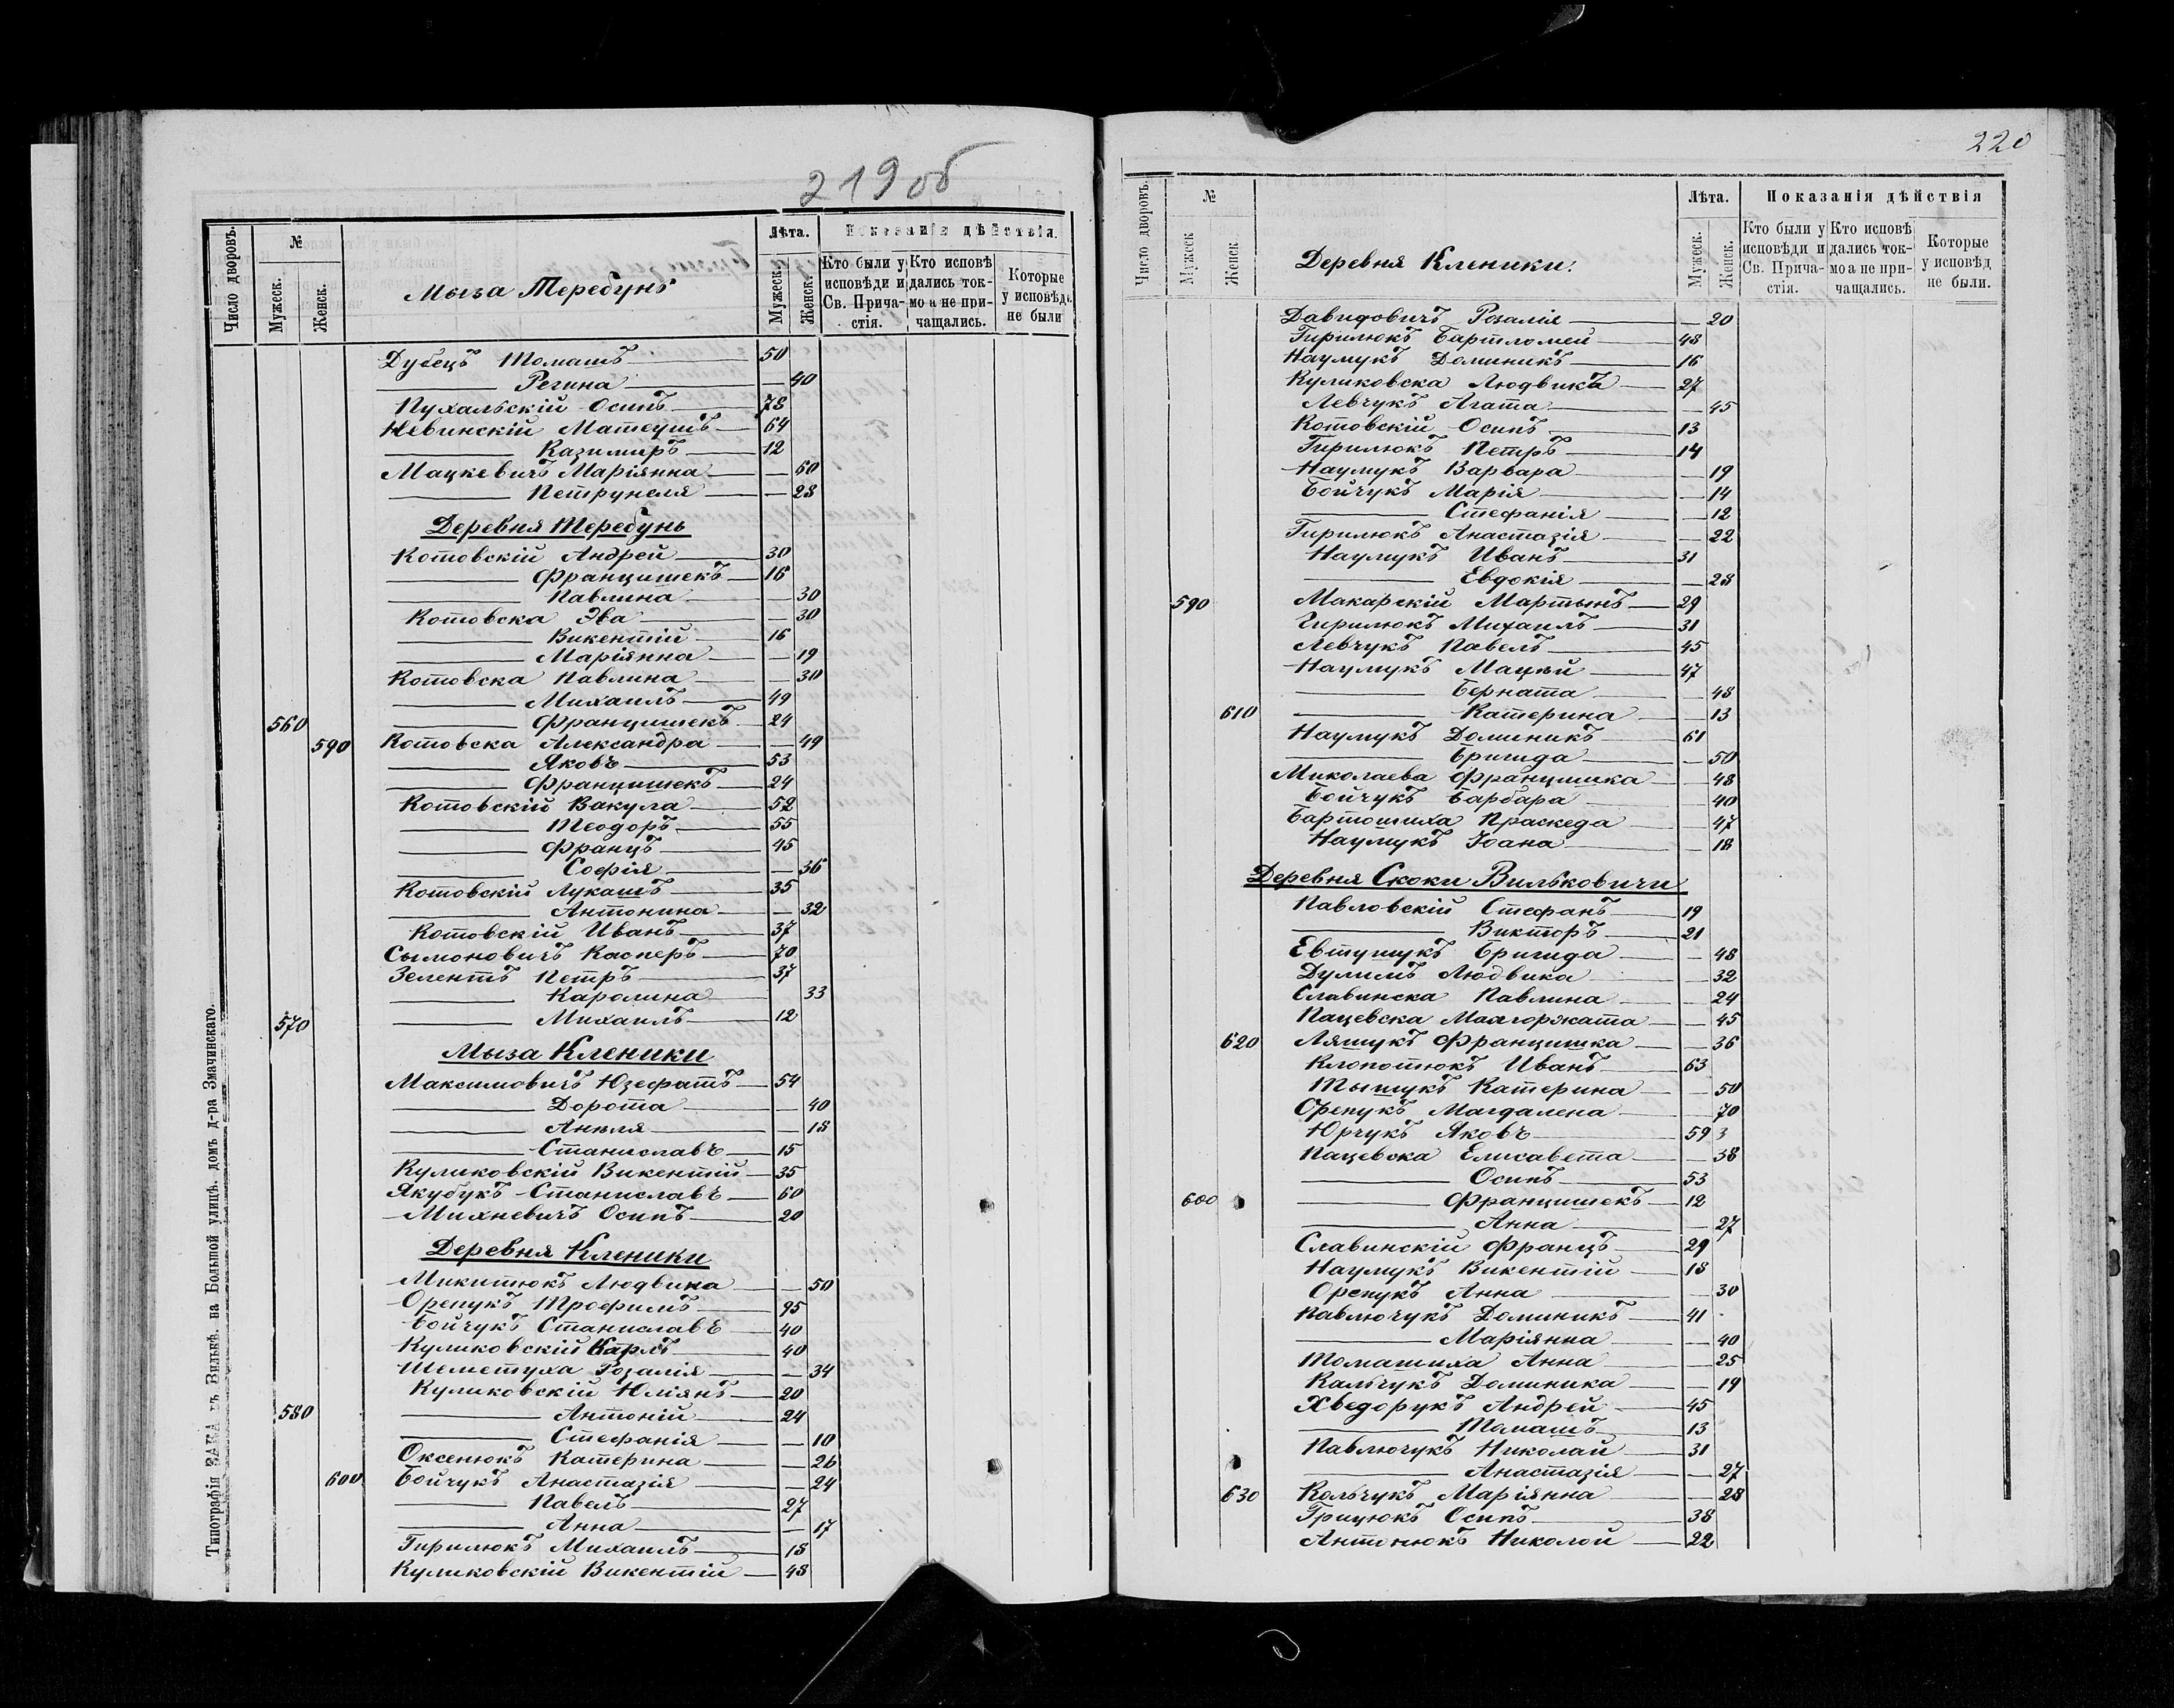 219 об
Число дворовъ.
№
Мужеск.
Женск.
Мыза Теребунь
Лѣта.
Мужеск.
Женск.
Показанія дѣйствія.
Кто были у исповѣди и Св. Причастія.
Кто исповѣдались токмо а не причащались.
Которые у исповѣд. не были
Дубецъ Томашъ — 50
— Регина — 40
Пухальскій Осипъ — 78
Невинскій Матеушъ — 64
— Казиміръ — 12
Мацкевичъ Маріянна — 60
— Петрунеля — 28
Деревня Теребунь
Котовскій Андрей — 30
— Францишекъ — 16
— Павлина — 30
Котовска Эва — 30
— Викентій — 16
— Маріянна — 19
Котовска Павлина — 30
— Михаилъ — 49
560 — Францишекъ — 24
590 Котовска Александра — 49
— Яковъ — 53
— Францишекъ — 24
Котовскій Вакула — 52
— Теодоръ — 55
— Францъ — 45
— Софія — 36
Котовскій Лукашъ — 35
— Антонина — 32
Котовскій Иванъ — 37
Сымоновичъ Касперъ — 70
Зелентъ Петръ — 37
— Каролина — 33
570 — Михаилъ — 12
Мыза Кленики
Максимовичъ Юзефатъ — 54
— Дорота — 40
— Анеля — 18
— Станиславъ — 15
Куликовскій Викентій — 35
Якубукъ Станиславъ — 60
Михневичъ Осипъ — 20
Деревня Кленики
Микитюкъ Людвика — 50
Орепукъ Трофимъ — 95
Бойчукъ Станиславъ — 40
Куликовскій Карлъ — 40
Шеметуха Розалія — 34
Куликовскій Юліянъ — 20
580 — Антоній — 24
— Стефанія — 10
Оксенюкъ Катерина — 26
600 Бойчукъ Анастазія — 24
— Павелъ — 27
— Анна — 17
Гирилюкъ Михаилъ — 18
Куликовскій Викентій — 48
Типографія ЗАКА въ Вильнѣ. на Большой улицѣ. домъ д-ра Змачинскаго.
220
Число дворовъ.
№
Мужеск
Женск
Деревня Кленики.
Лѣта.
Мужеск.
Женск.
Показанія дѣйствія
Кто были у исповѣди и Св. Причастія.
Кто исповѣдались токмо а не причащались.
Которые у исповѣд не были.
Давидовичъ Розалія — 20
Гирилюкъ Бартломей — 48
Наумукъ Доминикъ — 16
Куликовска Людвика — 27
Левчукъ Агата — 45
Котовскій Осипъ — 13
Гирилюкъ Петръ — 14
Наумукъ Варвара — 19
Бойчукъ Марія — 14
— Стефанія — 12
Гирилюкъ Анастазія — 22
Наумукъ Иванъ — 31
— Евдокія — 28
590 Макарскій Мартынъ — 29
Гирилюкъ Михаилъ — 31
Левчукъ Павелъ — 45
Наумукъ Мацѣй — 47
— Берната — 48
610 — Катерина — 13
Наумукъ Доминикъ — 61
— Бригида — 50
Миколаева Францишка — 48
Бойчукъ Барбара — 40
Бартошиха Праскеда — 47
Наумукъ Іоана — 18
Деревня Скоки Вильковичи
Павловскій Стефанъ — 19
— Викторъ — 21
Евтушукъ Бригида — 48
Дулимъ Людвика — 32
Славинска Павлина — 24
Пацевска Малгоржата — 45
620 Ляшукъ Францишка — 36
Клопотюкъ Иванъ — 63
Тышукъ Катерина — 50
Орепукъ Магдалена — 70
Юрчукъ Яковъ — 59 3
Пацевска Елисавета — 38
— Осипъ — 53
600 — Францишекъ — 12
— Анна — 27
Славинскій Францъ — 29
Наумукъ Викентій — 18
Орепукъ Анна — 30
Павлючукъ Доминикъ — 41
— Маріянна — 40
Томашиха Анна — 25
Кальчукъ Доминика — 19
Хведорукъ Андрей — 45
— Томашъ — 13
Павлючукъ Николай — 31
— Анастазія — 27
630 Кольчукъ Маріянна — 28
Грицюкъ Осипъ — 38
Антонюкъ Николой — 22